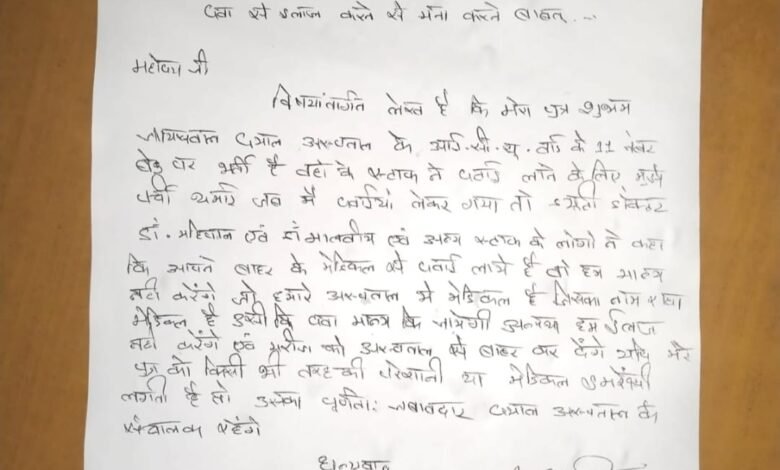 दवा से इलाज करने से मना करने बाबत्...
महोदय जी
विषयांतर्गत लेख है कि मेरा पुत्र शुभम
जायसवाल दयाल अस्पताल के आई.सी.यू. वार्ड के 11 नंबर
बेड पर भर्ती है वहां के स्टाफ ने दवाई लाने के लिए मुझे
पर्ची थमाई जब मै दवाईयां लेकर गया तो ड्यूटी डॉक्टर
डॉ. एवं डॉ मालवीय एवं अन्य स्टाफ के लोगो ने कहा
कि आपने बाहर के मेडिकल से दवाई लाये है वो हम मान्य
नही करेंगे जो हमारे अस्पताल मे मेडिकल है जिसका नाम राधा
मेडिकल है उसी कि दवा मान्य कि जायेगी अन्यथा हम ईलाज
नही करेंगे एवं मरीज को अस्पताल से बाहर कर देंगे यदि मेरे
पुत्र को किसी भी तरह की परेशानी या मेडिकल इमरजेंसी
लगती है तो उसका पूर्णतः जवाबदार दयाल अस्पताल के
संचालक रहेंगे
धन्यवाद